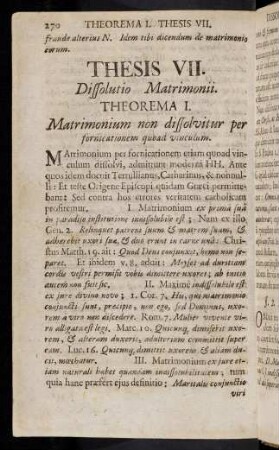 270 THEOREMA I. THESIS VII.
fraude alterius N. Idem tibi dicendum de matrimonio
eorum.
THESIS VII.
Dissolutio Matrimonii.
THEOREMA I.
Matrimonium non dissolvitur per
fornicationem quoad vinculum.
MAtrimonium per fornicationem etiam quoad vin-
culum dissolvi, admittunt moderni HH. Ante
quos idem docuit Tertullianus, Catharinus, & nonnul-
li: Et teste Origene Episcopi quidam Græci permitte-
bant: Sed contra hos errores veritatem catholicam
profitemur. I. Matrimonium ex prima sua
in paradiso institutione insolubile est; Nam ex illo
Gen. 2. Relinquet patrem suum & matrem suam, &
adhærebit uxori suæ, & duo erunt in carne una: Chri-
stus Matth. 19. ait: Quod Deus conjunxit, homo non se-
paret. Et ibidem v. 8. adjicit: Moyses ad duritiam
cordis vestri permisit vobis dimittere uxores; ab initio
autem non fuit sic. II. Maxime indissolubile est
ex jure divino novo; 1. Cor. 7. His, qui matrimonio
conjuncti sunt, præcipio, non ego, sed Dominus, uxo-
rem à viro non discedere. Rom. 7. Mulier vivente vi-
ro alligata est legi. Marc. 10. Quicunq; dimiserit uxo-
rem, & alteram duxerit, adulterium committit super
eam. Luc. 16. Quicunq; dimittit uxorem & aliam du-
cit, mœchatur. III. Matrimonium ex jure et-
iam naturali habet quandam indissolubilitatem; nun
quia hanc præfert ejus definitio; Maritalis conjunctio
viri